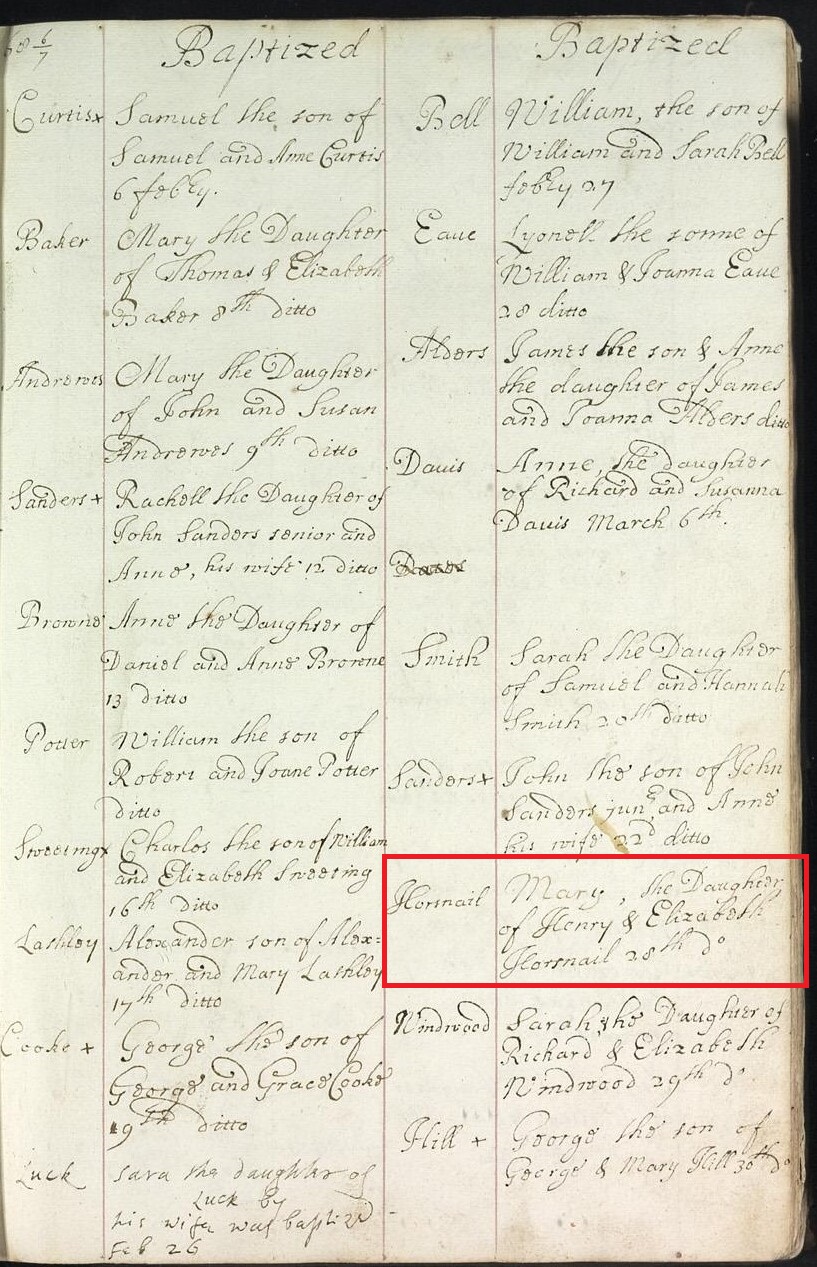 168 6/7
Baptized
Curtis x Samuel the son of
Samuel and Anne Curtis
6 febry.
Baker Mary the Daughter
of Thomas & Elizabeth
Baker 8th ditto
Andrewes Mary the Daughter
of John and Susan
Andrewes 9th ditto
Sanders + Rachell the Daughter of
John Sanders senior and
Anne, his wife 12 ditto
Browne Anne the Daughter of
Daniel and Anne Browne
13 ditto
Potter William the son of
Robert and Joane Potter
ditto
Sweeting x Charles the son of William
and Elizabeth Sweeting
16th ditto
Lashley Alexander son of Alex=
ander and Mary Lashley
17th ditto
Cooke + George the son of
George and Grace Cooke
19th ditto
Luck sara the daughter of
Luck by
his wife was baptized
feb 26
Baptized
Bell William, the son of
William and Sarah Bell
febry 27
Eaue Lyonell the sonne of
William & Joanna Eaue
28 ditto
Alders James the son & Anne
the daughter of James
and Joanna Alders ditto
Dauis Anne, the daughter
of Richard and Susanna
Dauis March 6th.
Smith Sarah the Daughter
of Samuel and Hannah
Smith 20th ditto
Sanders x John the son of John
Sanders junr and Anne
his wife 22d ditto
Horsnail Mary, the Daughter
of Henry & Elizabeth
Horsnail 28th do
Windwood Sarah the Daughter of
Richard & Elizabeth
Windwood 29th do
Hill + George the son of
George & Mary Hill 30th do